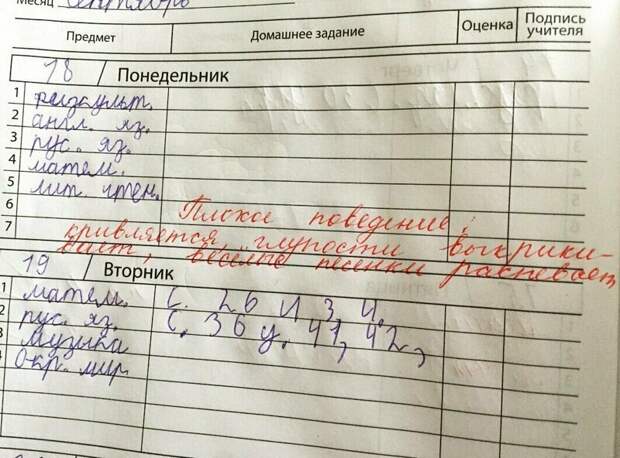 Месяц сентябрь
Предмет Домашнее задание Оценка Подпись учителя
18 Понедельник
1 физкульт.
2 англ. яз.
3 рус. яз.
4 матем.
5 лит. чтен.
6 Плохое поведение:
7 кривляется, глупости выкрики-
вает, весёлые песенки распевает
19 Вторник
1 матем. с. 26 и 3, 4.
2 рус. яз. с. 36 у. 41, 42,
3 музыка
4 окр. мир